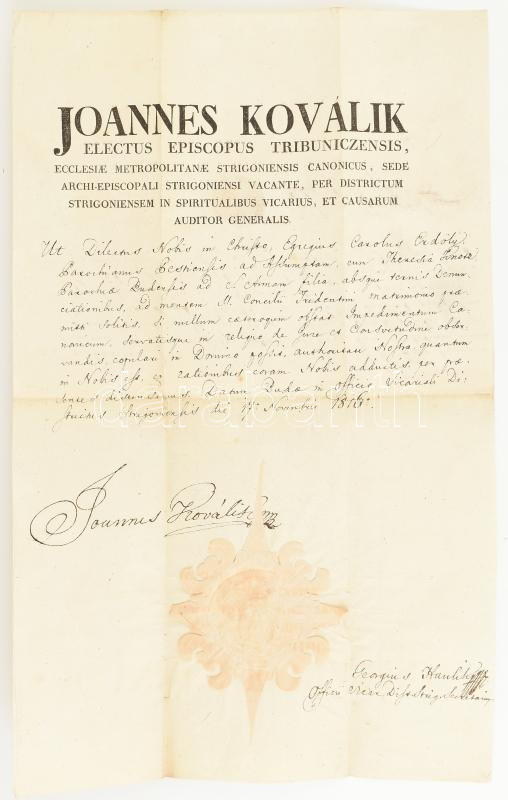 JOANNES KOVÁLIK
ELECTUS EPISCOPUS TRIBUNICZENSIS,
ECCLESIÆ METROPOLITANÆ STRIGONIENSIS CANONICUS, SEDE
ARCHI-EPISCOPALI STRIGONIENSI VACANTE, PER DISTRICTUM
STRIGONIENSEM IN SPIRITUALIBUS VICARIUS, ET CAUSARUM
AUDITOR GENERALIS.
Ut Dilectus Nobis in Christo, Egregius Carolus Erdőly
Parochianus Pestiensis ad Assumptam, cum Theresia
Parochiæ Budensis ad S. Annam filia, absque ternis Denun-
ciationibus, ad mentem S. Concilii Tridentini matrimonio præ-
mitti solitis, si nullum cæteroquin obstat Impedimentum Ca-
nonicum, servatisque in reliquo de Jure et Consvetudine obser-
vandis, copulari in Domino possit, authoritate Nostra, quantum
in Nobis est, ex rationibus coram Nobis adductis, per præ-
sentes dispensamus. Datum Budæ in officio Vicariali Di-
strictus Strigoniensis die 14 Novembris
darabanth
Joannes Koválik
Georgius Haulik
Officii Vicar. Distr. Strig. Secretarius